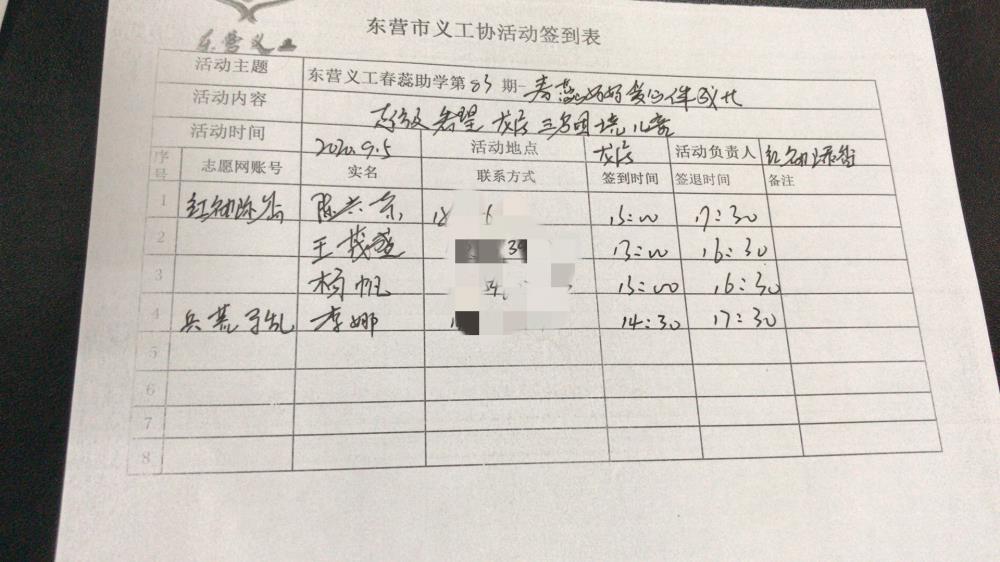 东营义工
东营市义工协活动签到表
活动主题 东营义工春蕊助学第83期-春蕊妈妈爱心伴成长
活动内容 希望 龙居三名困境儿童
活动时间 2020.9.5 活动地点 龙居 活动负责人
序号 志愿网账号 实名 联系方式 签到时间 签退时间 备注
1 15:00 17:30
2 39 13:00 16:30
3 杨帆 13:00 16:30
4 李娜 14:30 17:30
5
6
7
8